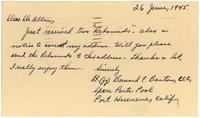 26 June, 1945.
Dear Dr. Allen,
Just received two "Rebounds". also a
notice to correct my address. Will you please
send the Rebounds to this address - Thanks a lot.
I really enjoy them. Sincerely
Lt. (jg) Howard E. CEC,
Spare Parts Pool
Port Hueneme, Calif.